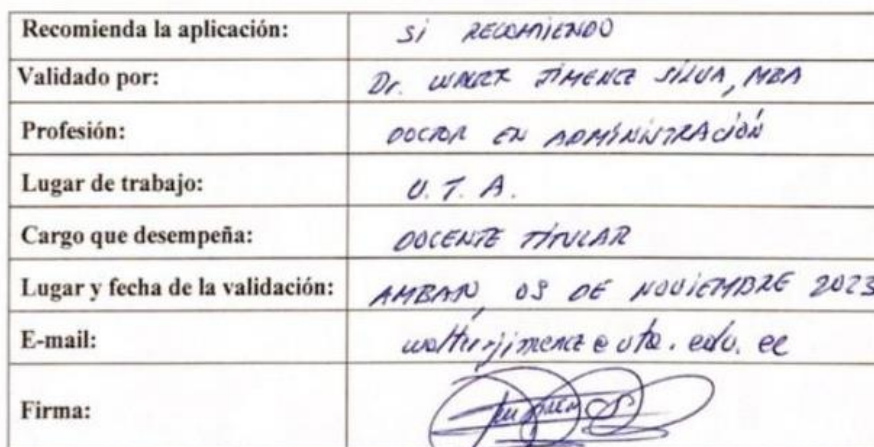 Recomienda la aplicación: Si RECOMIENDO
Validado por: Dr. WALTER JIMENEZ SILVA, MBA
Profesión: DOCTOR EN ADMINISTRACIÓN
Lugar de trabajo: U. T. A.
Cargo que desempeña: DOCENTE TITULAR
Lugar y fecha de la validación: AMBATO, 08 DE NOVIEMBRE 2023
E-mail: walterjimenez@uta.edu.ec
Firma: